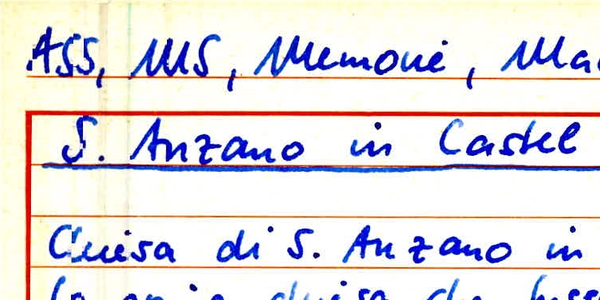 ASS, MS, Memorie, Ma
S. Anzano in Castel
Chiesa di S. Anzano in
chiesa che